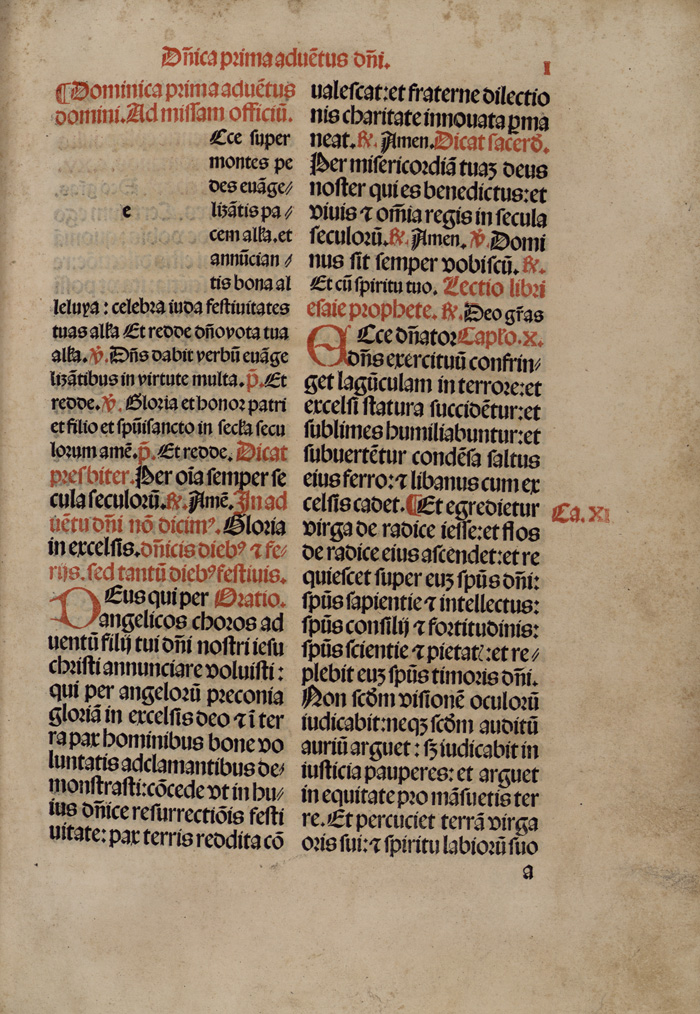 Dn̄ica prima aduētus dn̄i.
I
¶Dominica prima aduētus
domini. Ad missam officiū.
Cce super
montes pe
des euāge⸗
e
lizātis pa⸗
cem alľa. et
annūcian⸗
tis bona al
leluya: celebra iuda festiuitates
tuas alľa Et redde dn̄o vota tua
alľa. ℣. Dn̄s dabit verbū euāge
lizātibus in virtute multa. p̄. Et
redde. ℣. Gloria et honor patri
et filio et spūisancto in secľa secu
lorum amē. p̄. Et redde. Dicat
presbiter. Per oīa semper se
cula seculorū. ℟. Amē. In ad
uētu dn̄i nō dicimꝰ. Gloria
in excelsis. dn̄icis diebꝰ ⁊ fe⸗
rijs. sed tantū diebꝰ festiuis.
DEus qui per Oratio.
angelicos choros ad
uentū filij tui dn̄i nostri iesu
christi annunciare voluisti:
qui per angelorū preconia
gloriā in excelsis deo ⁊ ī ter
ra pax hominibus bone vo
luntatis adclamantibus de⸗
monstrasti: cōcede vt in hu⸗
ius dn̄ice resurrectiōis festi
uitate: pax terris reddita cō
ualescat: et fraterne dilectio
nis charitate innouata ꝑma
neat. ℟. Amen. Dicat sacerđ.
Per misericordiā tuaꝫ deus
noster qui es benedictus: et
viuis ⁊ om̄ia regis in secula
seculorū. ℟. Amen. ℣. Domi
nus sit semper vobiscū. ℟.
Et cū spiritu tuo. Lectio libri
esaie prophete. ℟. Deo gr̄as
ECce dn̄ator Capľo. x.
dn̄s exercituū confrin⸗
get lagūculam in terrore: et
excelsi statura succidētur: et
sublimes humiliabuntur: et
subuertētur condēsa saltus
eius ferro: ⁊ libanus cum ex
celsis cadet. ¶Et egredietur
Ca. XI
virga de radice iesse: et flos
de radice eius ascendet: et re
quiescet super euꝫ spūs dn̄i:
spūs sapientie ⁊ intellectus:
spūs consilij ⁊ fortitudinis:
spūs scientie ⁊ pietat{: et re⸗
plebit euꝫ spūs timoris dn̄i.
Non scđm visionē oculorū
iudicabit: neqꝫ scđm auditū
auriū arguet: sꝫ iudicabit in
iusticia pauperes: et arguet
in equitate pro māsuetis ter
re. Et percuciet terrā virga
oris sui: ⁊ spiritu labiorū suo
a